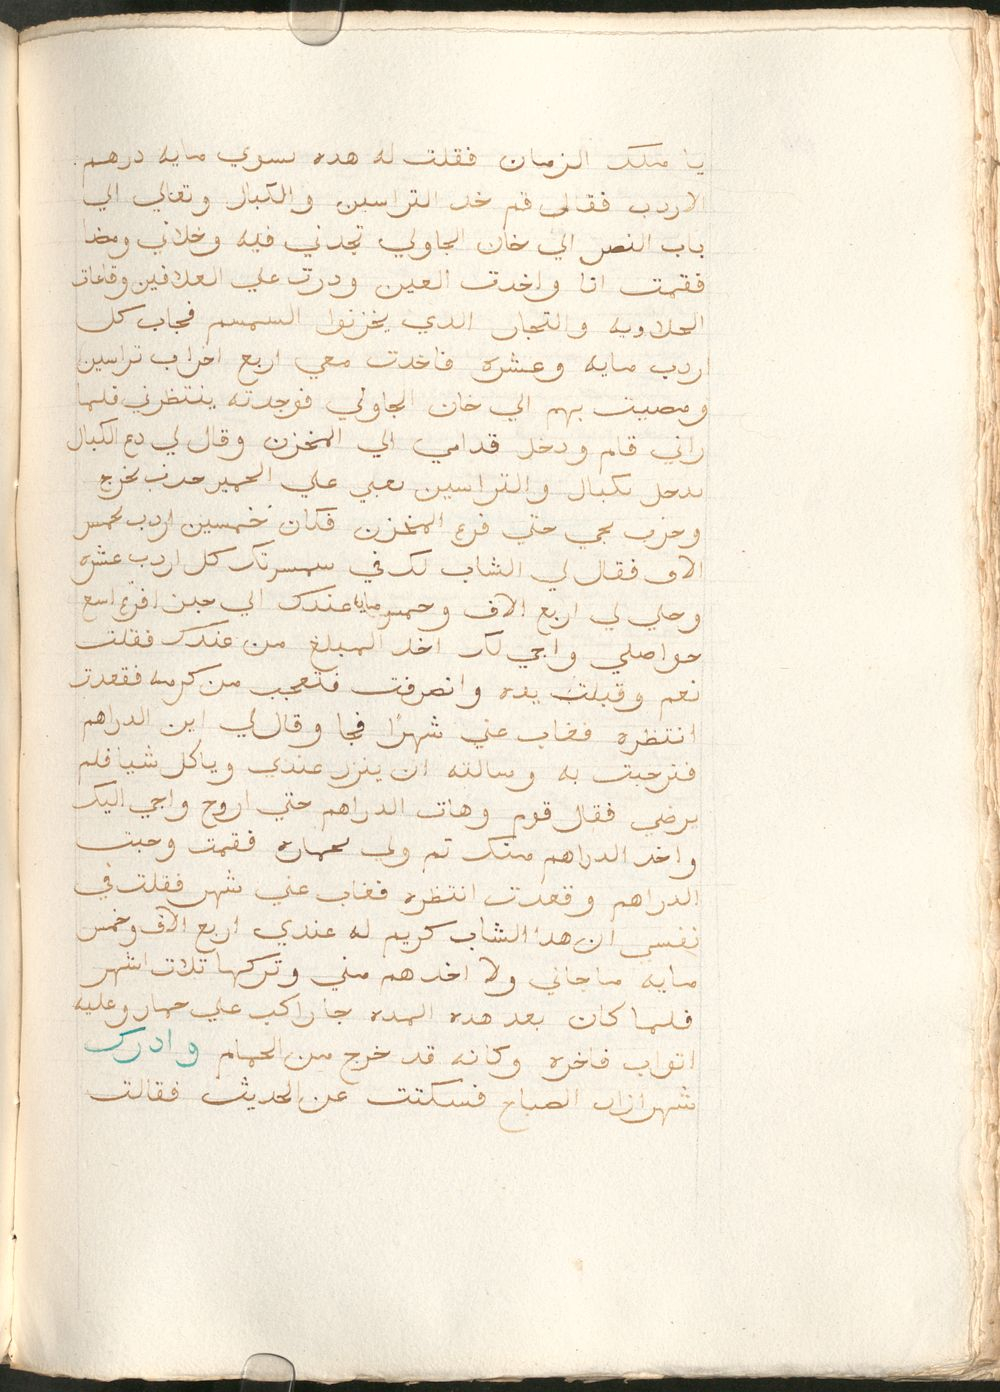 يا ملك الزمان فقلت له هده تسوي مايه درهم
الاردب فقالي قم خد التراسين والكيال وتعالي الي
باب النصر الي خان الجاولي تجدني فيه وخلاني ومضا
فقمت انا واخدت العين ودرت علي العلافين وقاعات
الحلاويه والتجار الدي يخزنوا السمسم فجاب كل
اردب مايه وعشره فاخدت معي اربع احزاب تراسين
ومضيت بهم الي خان الجاولي فوجدته ينتظرني فلما
راني قام ودخل قدامي الي المخزن وقال لي دع الكيال
يدخل يكيال والتراسين يعبي علي الحمير حزب يخرج
وحزب يجي حتي فرغ المخزن فكان خمسين اردب بخمس
الاف فقال لي الشاب لك في سمسرتك كل اردب عشره
وخلي لي اربع الاف وخمس مايه عندك الي حين افرغ ابيع
حواصلي واجي لك اخد المبلغ من عندك فقلت
نعم وقبلت يده وانصرفت فتعجب من كرمه فقعدت
انتظره فغاب عني شهرًا فجا وقال لي اين الدراهم
فترحبت به وسالته ان ينزل عندي وياكل شيا فلم
يرضي فقال قوم وهات الدراهم حتي اروح واجي اليك
واخد الدراهم منك تم ولي بحماره فقمت وجبت
الدراهم وقعدت انتظره فغاب عني شهر فقلت في
نفسي ان هدا الشاب كريم له عندي اربع الاف وخمس
مايه ما جاني ولا اخدهم مني وتركها تلات اشهر
فلما كان بعد هده المده جا راكب علي حمار وعليه
اتواب فاخره وكانه قد خرج من الحمام وادرك
شهرازاد الصباح فسكتت عن الحديث فقالت